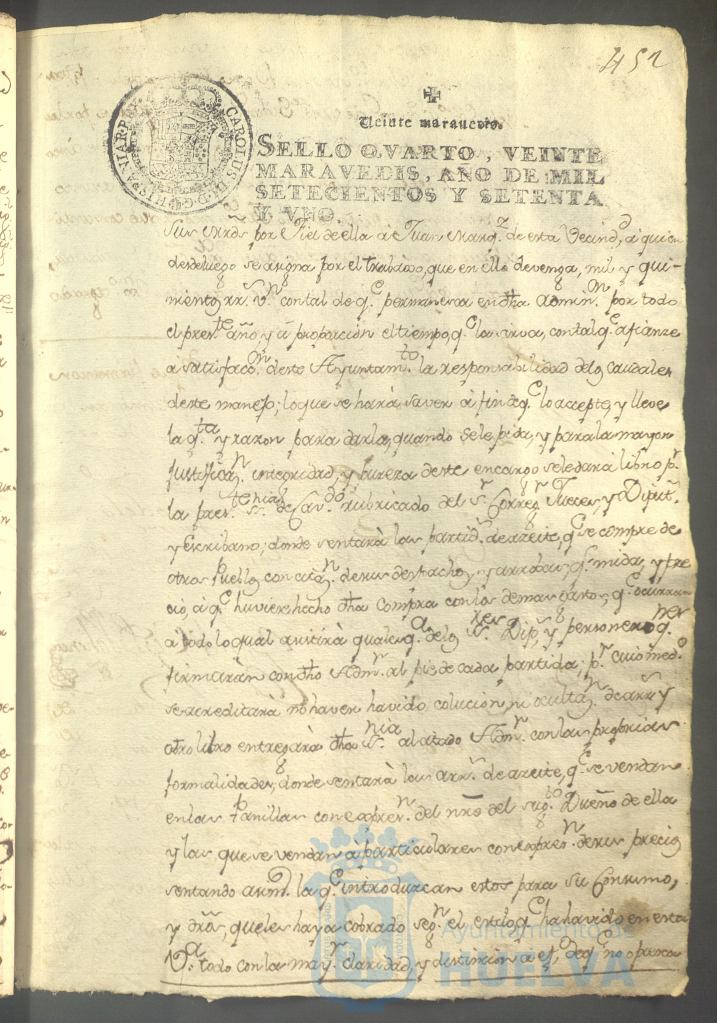 452
Veinte maravedis.
SELLO QVARTO, VEINTE
MARAVEDIS, AÑO DE MIL
SETECIENTOS Y SETENTA
Y VNO.
CAROLUS III D. G. HISPANIAR. REX
por Fiel de ella à Juan Marqz. de esta Vecindd, à quien
desde luego se asigna por el trabaxo, que en ello devenga, mil y qui-
nientos rr. vn. con tal de qe. permanezca en dha Admin.on por todo
el presте año, y à proporcion el tiempo, qe. la sirva, con tal qe. afianze
a satisfacon. deste Ayuntamto. la responsabilidad delos caudales
deste manejo; lo que se hará saver à fin de qe. lo accepte, y lleve
la qta. y razon para darla, quando se le pida, y para la mayor
justificaon. integridad, y pureza deste encargo se le dará libro pr.
la presте. ss.nia de Cavdo. rubricado del Sr. Corregr. Jueces, y Diput.s
y Escribano; donde sentará las partids. de azeite, qe. se compre de
otros Pueblos con de sus despachos, y arrobas, qe. mida, y pre
cio, à qe. huviere hecho dha compra con los demas gastos, qe. ocurran
a todo lo qual asitirá qualqa. delos Sres. Dips. y personeros, qnes.
firmarán con dho Admr. al pie de cada partida; pr. cuio medo.
se acreditará no haver havido colucion, ni ocultaon. de arrs. y
otro libro entregará dha ss.nia al citado Admr. con las proprias
formalidades, donde sentará las arrs. de azeite, qe. se vendan
en las Panillas con expresn. del nro del sugto. Dueño de ella
y las, que se vendan à particulares con expresn. de sus precios
sentando asimo. la qe. introduzcan estos para su Consumo,
y dros, que les haya cobrado segn. el estilo qe. ha havido en esta
Va. todo con la mayr. claridad, y distincion a efo. de qe. no o para
Ayuntamiento de
HUELVA